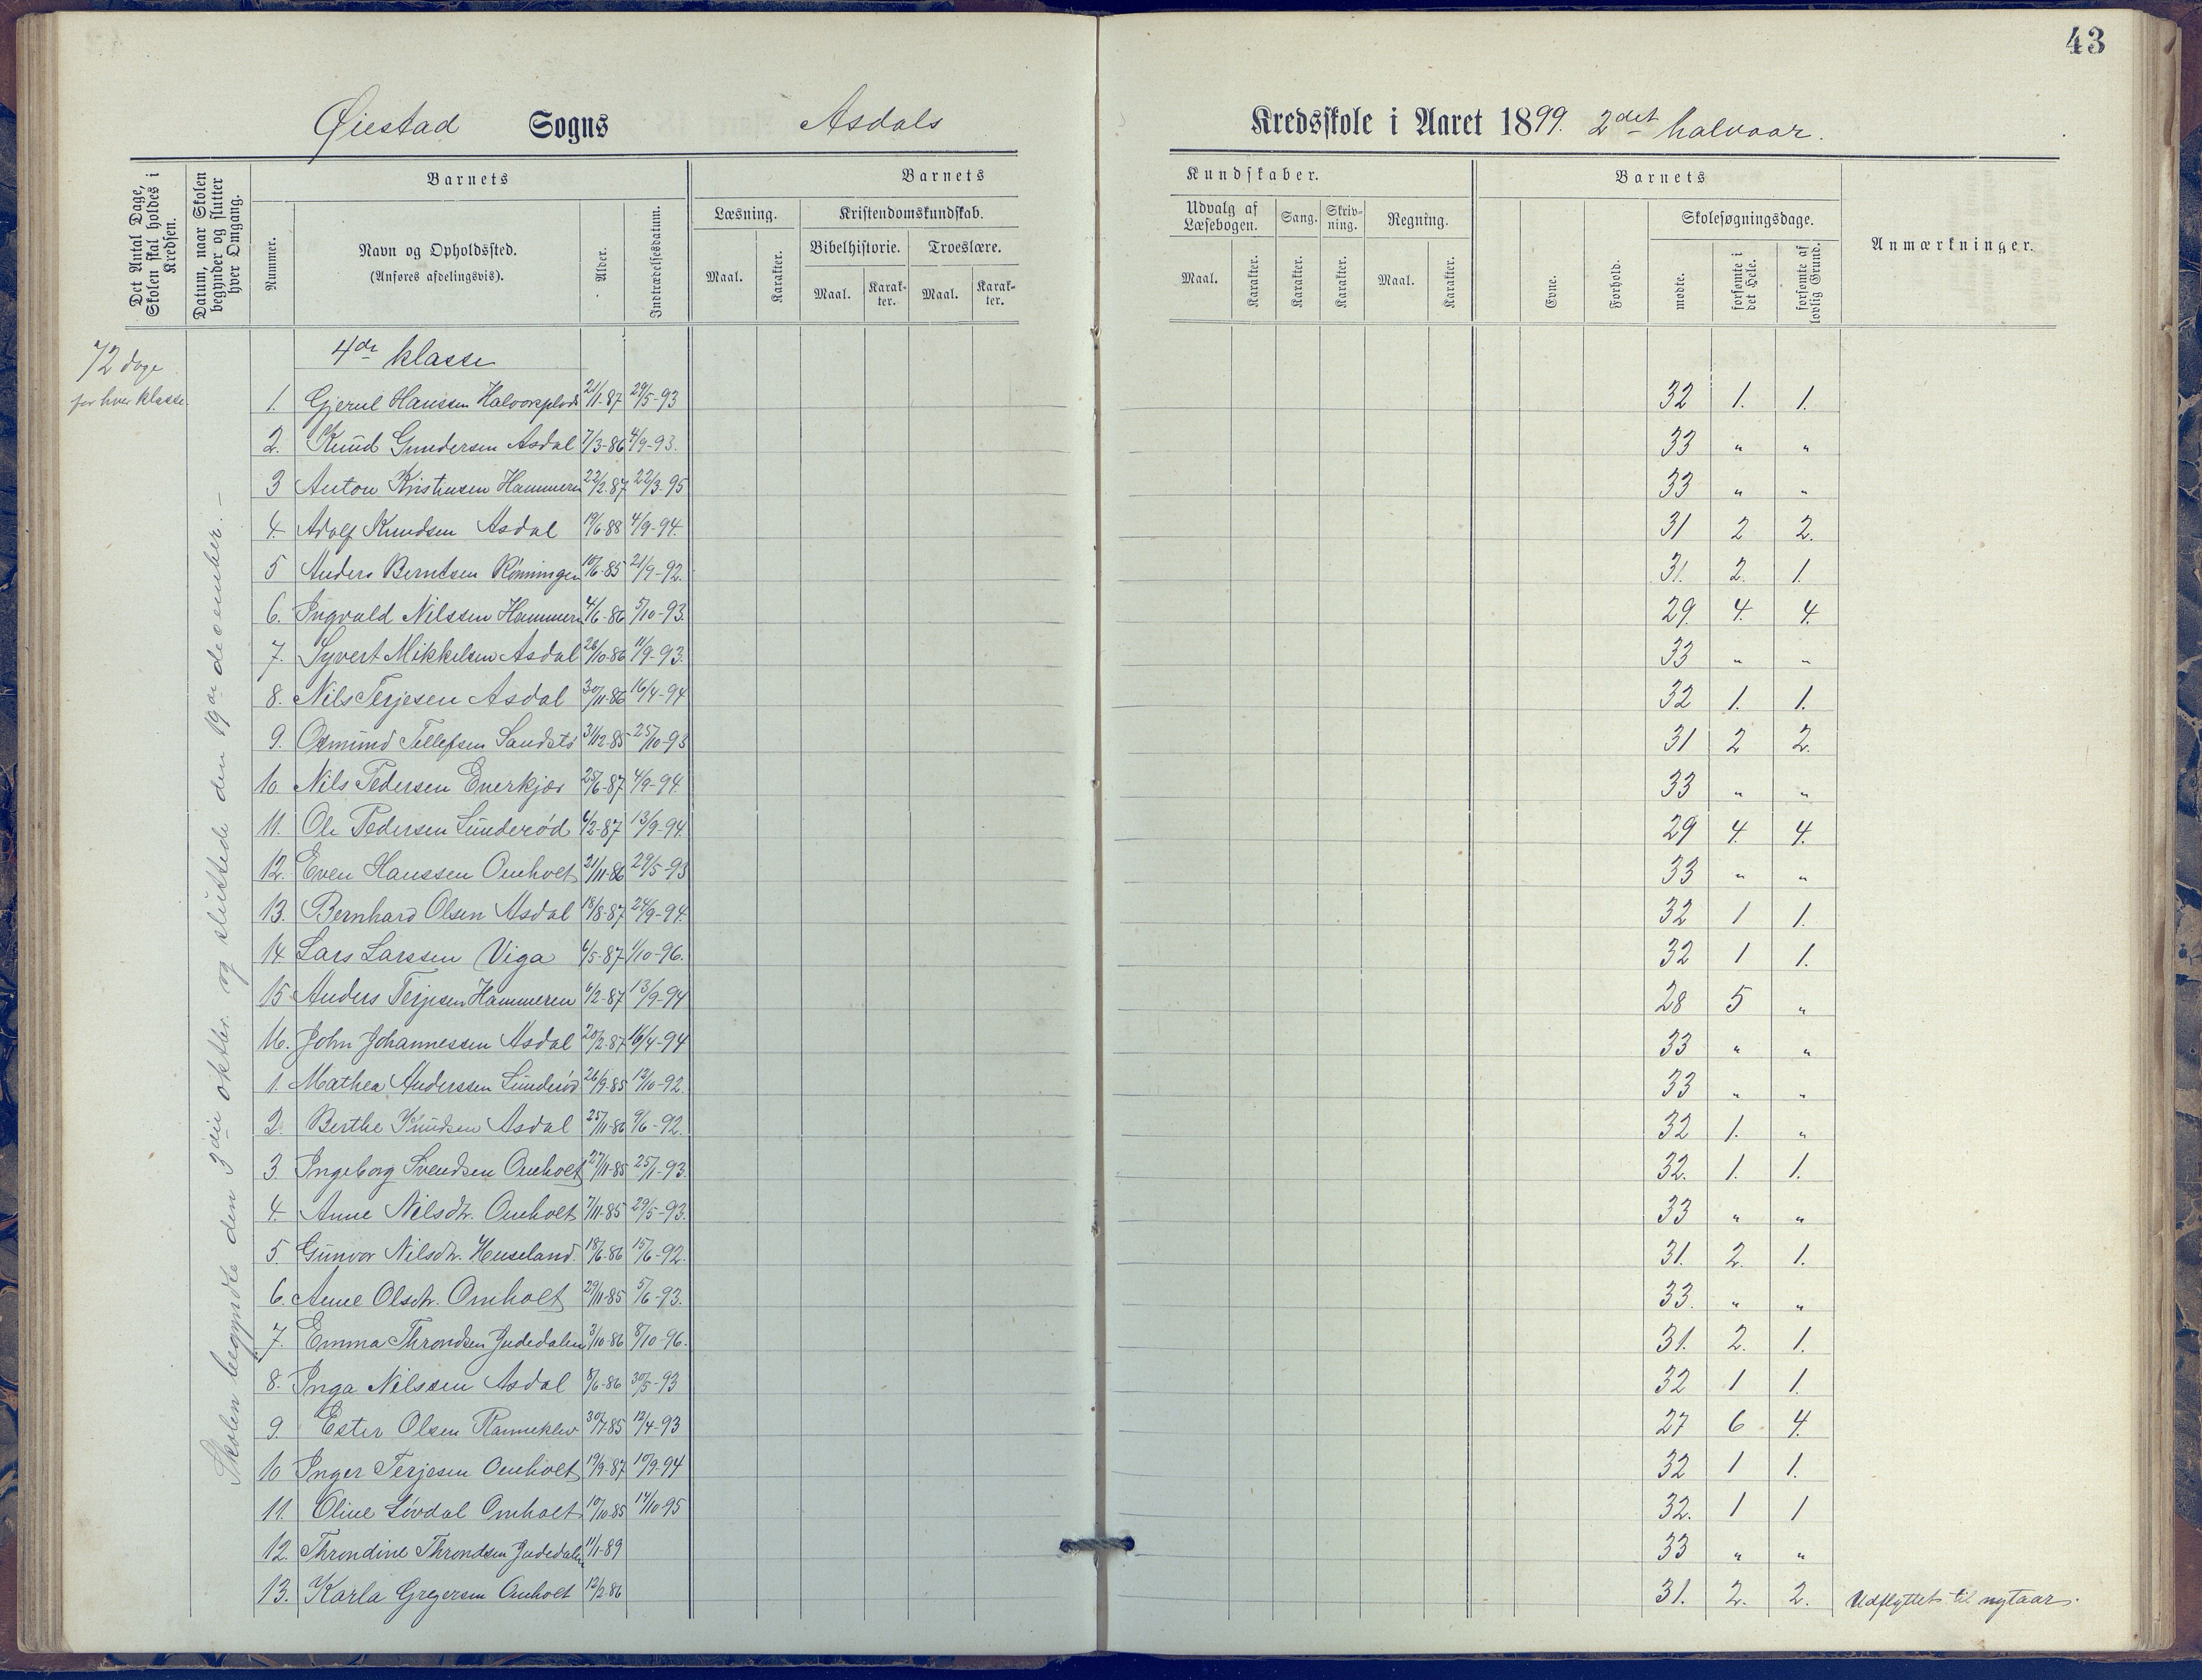 43
Øiestad Sogns Asdals Kredsskole i Aaret 1899. 2det halvaar.
Det Antal Dage, Skolen skal holdes i Kredsen.
Datum, naar Skolen begynder og slutter hver Omgang.
Barnets
Nummer.
Navn og Opholdssted.
(Anføres afdelingsvis).
Alder.
Indtrædelsesdatum.
Barnets Kundskaber.
Læsning. Kristendomskundskab. Udvalg af Læsebogen. Sang. Skrivning. Regning.
Bibelhistorie. Troeslære.
Maal. Karakter. Maal. Karakter. Maal. Karakter. Maal. Karakter. Karakter. Karakter. Maal. Karakter.
Barnets
Evne. Forhold.
Skolesøgningsdage.
mødte. forsømte i det Hele. forsømte af lovlig Grund.
Anmærkninger.
72 dage
for hver klasse
Skolen begyndte den 3die oktbr. og sluttede den 19de december. –
4de klasse
1. Gjerul Hanssen 21/11-87 29/5-93 32 1. 1.
2. Knud Gundersen Asdal 7/3-86 4/9-93. 33 " "
3 Anton Kristensen Hammeren 22/2-87 22/3-95 33 " "
4. Adolf Knudsen Asdal 19/6-88 4/9-94. 31 2 2.
5 Anders Berntsen Rønningen 10/6-85 21/9-92. 31. 2. 1.
6. Ingvald Nilssen Hammeren 4/6-86 5/10-93. 29. 4. 4.
7. Syvert Mikkelsen Asdal 26/10-86 11/9-93. 33 " "
8. Nils Terjesen Asdal 30/11-86 16/4-94 32 1. 1.
9. Osmund Tellefsen Sandstø 31/12-85 25/10-93 31 2 2.
10. Nils Pedersen Enerkjær 25/6-87 4/9-94. 33 " "
11. Ole Pedersen Sunderød 6/2-87 13/9-94. 29 4. 4.
12. Even Hanssen Omholt 21/11-86 29/5-93 33 " "
13. Bernhard Olsen Asdal 18/8-87 24/9-94. 32 1 1.
14 Lars Larssen Viga 6/5-87 1/10-96. 32 1 1.
15 Anders Terjesen Hammeren 6/2-87 13/9-94 28 5 "
16. John Johannessen Asdal 20/2-87 16/4-94 33 " "
1. Mathea Anderssen Sunderød 26/9-85 12/10-92. 33 " "
2. Berthe Knudsen Asdal 25/11-86 9/6-92. 32 1. "
3. Ingeborg Svendsen Omholt 27/11-85 25/1-93. 32. 1. 1.
4. Anne Nilsdtr. Omholt 7/11-85 29/5-93. 33 " "
5. Gunvor Nilsdtr. Huseland. 18/6-86 15/6-92. 31. 2. 1.
6. Anne Olsdtr. Omholt 29/11-85 5/6-93. 33. " "
7. Emma Throndsen Judedalen 3/10-86 8/10-96. 31. 2. 1.
8. Inga Nilssen Asdal 8/6-86 30/5-93 32 1 1.
9. Ester Olsen Ranneklev 30/7-85 12/4-93 27 6 4.
10 Inger Terjesen Omholt 19/9-87 10/9-94 32 1 1.
11. Oline Løvdal Omholt 10/10-85 14/10-95 32. 1 1
12. Throndine Throndsen Judedalen 11/1-89 33 " "
13. Karla Gregersen Omholt 12/2-86 31. 2. 2. Udflyttet til nytaar.